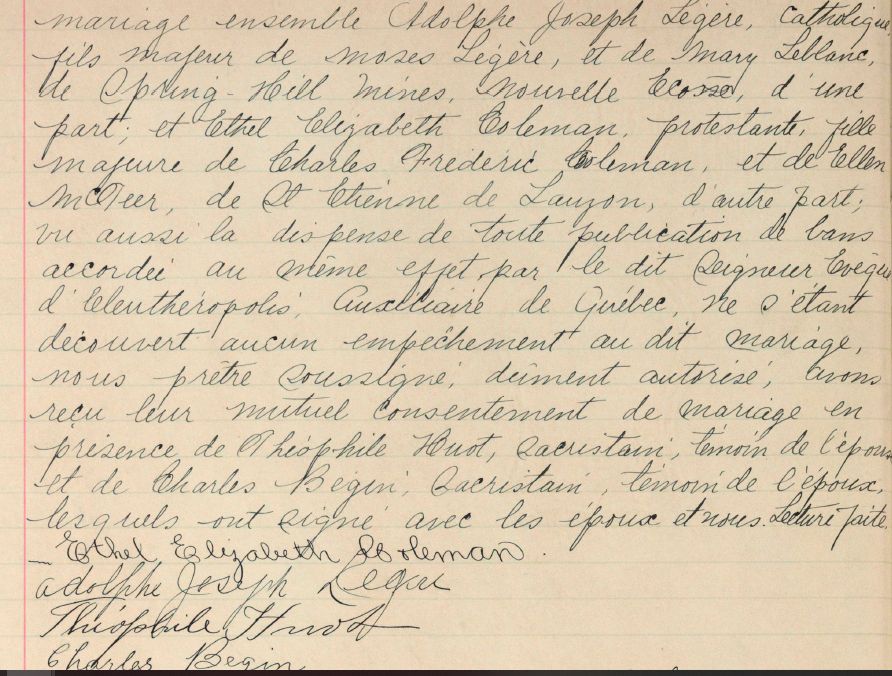 mariage ensemble Adolphe Joseph Légère, catholique,
fils majeur de Moses Légère, et de Mary Leblanc,
de Spring-Hill Mines, Nouvelle Ecosse, d'une
part; et Ethel Elizabeth Coleman, protestante, fille
majeure de Charles Frédéric Coleman, et de Ellen
McTeer, de St Etienne de Lauzon, d'autre part;
vu aussi la dispense de toute publication de bans
accordée au même effet par le dit Seigneur Evêque
d'Eleuthéropolis, Auxiliaire de Québec, ne s'étant
découvert aucun empêchement au dit mariage,
nous prêtre soussigné, dûment autorisé, avons
reçu leur mutuel consentement de mariage en
présence de Théophile Huot, sacristain, témoin de l'épouse
et de Charles Bégin, sacristain, témoin de l'époux,
lesquels ont signé avec les époux et nous. Lecture faite.
Ethel Elizabeth Coleman.
Adolphe Joseph Legere
Théophile Huot
Charles Begin